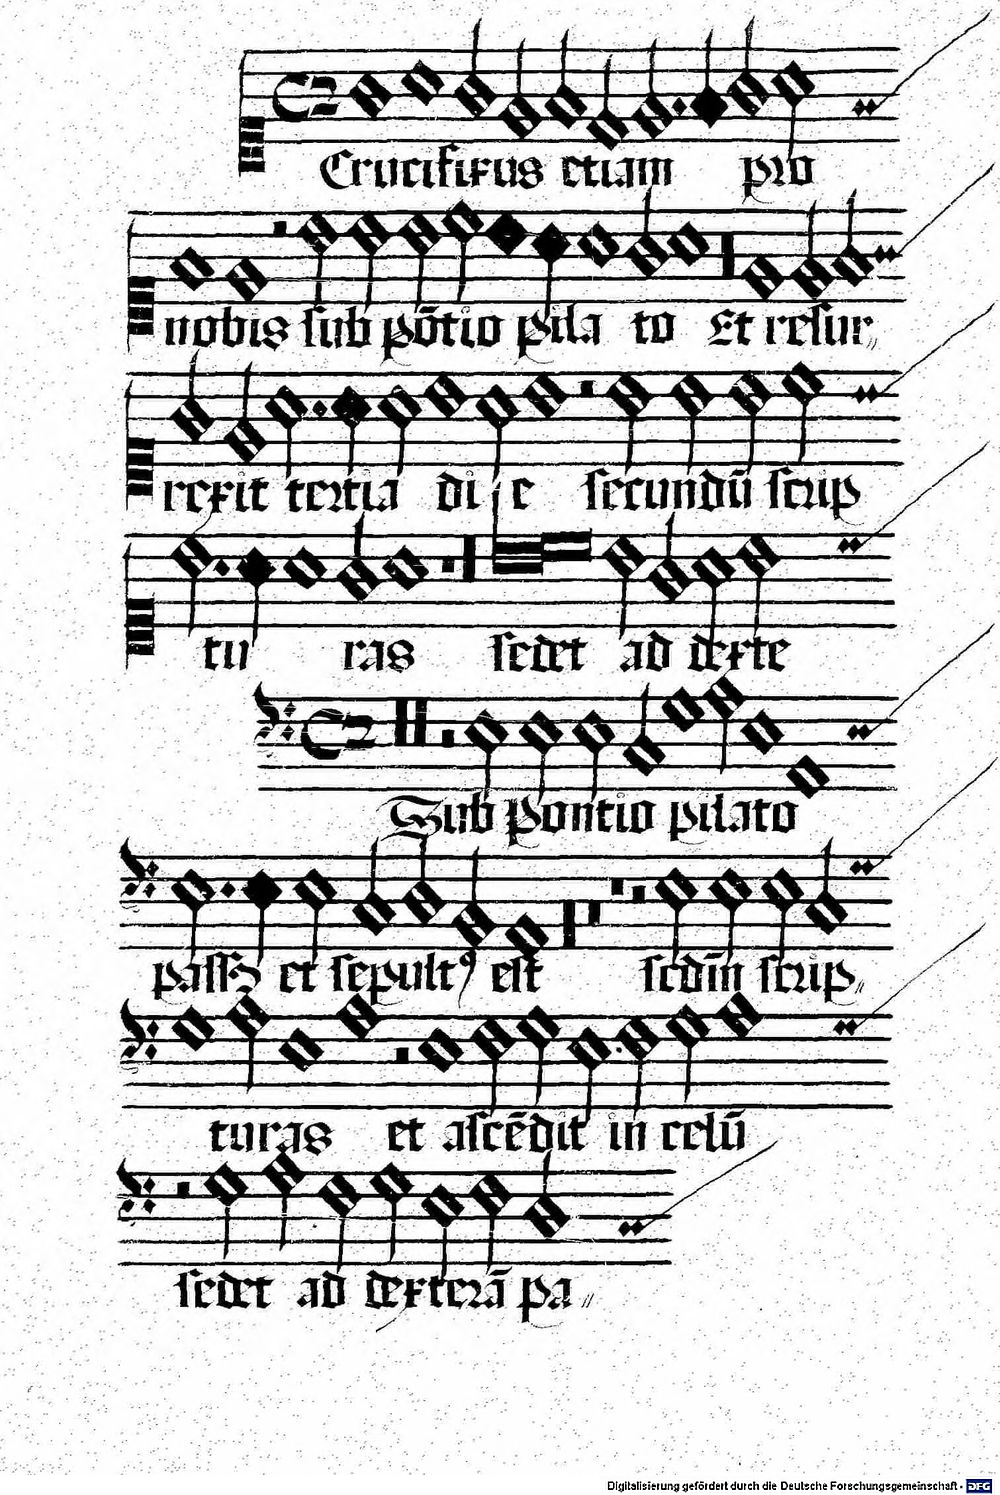 Crucifixus etiam pro
nobis sub põtio pila to Et resur〃
rexit tertia di e secundũ scrip
tu ras sedet ad dexte
Sub Pontio pilato
passꝫ et sepultꝰ est scdm̄ scrip〃
turas et ascẽdit in celũ
sedet ad dexterã pa〃
Digitalisierung gefördert durch die Deutsche Forschungsgemeinschaft - DFG